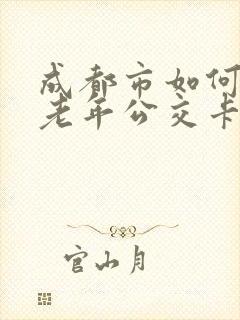 成都市如何
老年公交卡
官山月